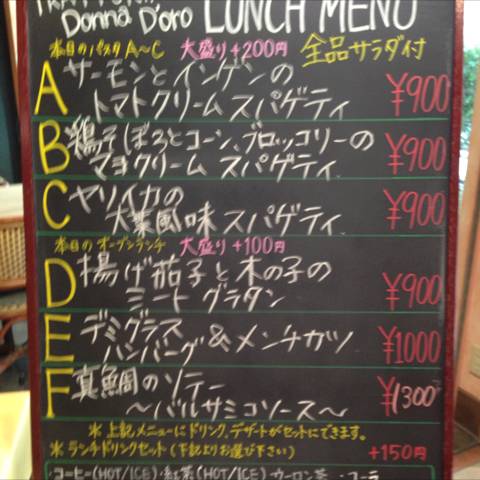 TRATTORIA
Donna D'oro LUNCH MENU
本日のパスタ A〜C 大盛り+200円 全品サラダ付
A サーモンとインゲンの
トマトクリームスパゲティ ¥900
B 鶏そぼろとコーン、ブロッコリーの
マヨクリームスパゲティ ¥900
C ヤリイカの
大葉風味スパゲティ ¥900
本日のオーブンランチ 大盛り+100円
D 揚げ茄子と木の子の
ミートグラタン ¥900
E デミグラス
ハンバーグ&メンチカツ ¥1000
F 真鯛のソテー
〜バルサミコソース〜 ¥1300
※上記メニューにドリンク、デザートがセットにできます。
※ランチドリンクセット(下記よりお選び下さい) +150円
・コーヒー(HOT/ICE)・紅茶(HOT/ICE)ウーロン茶・コーラ